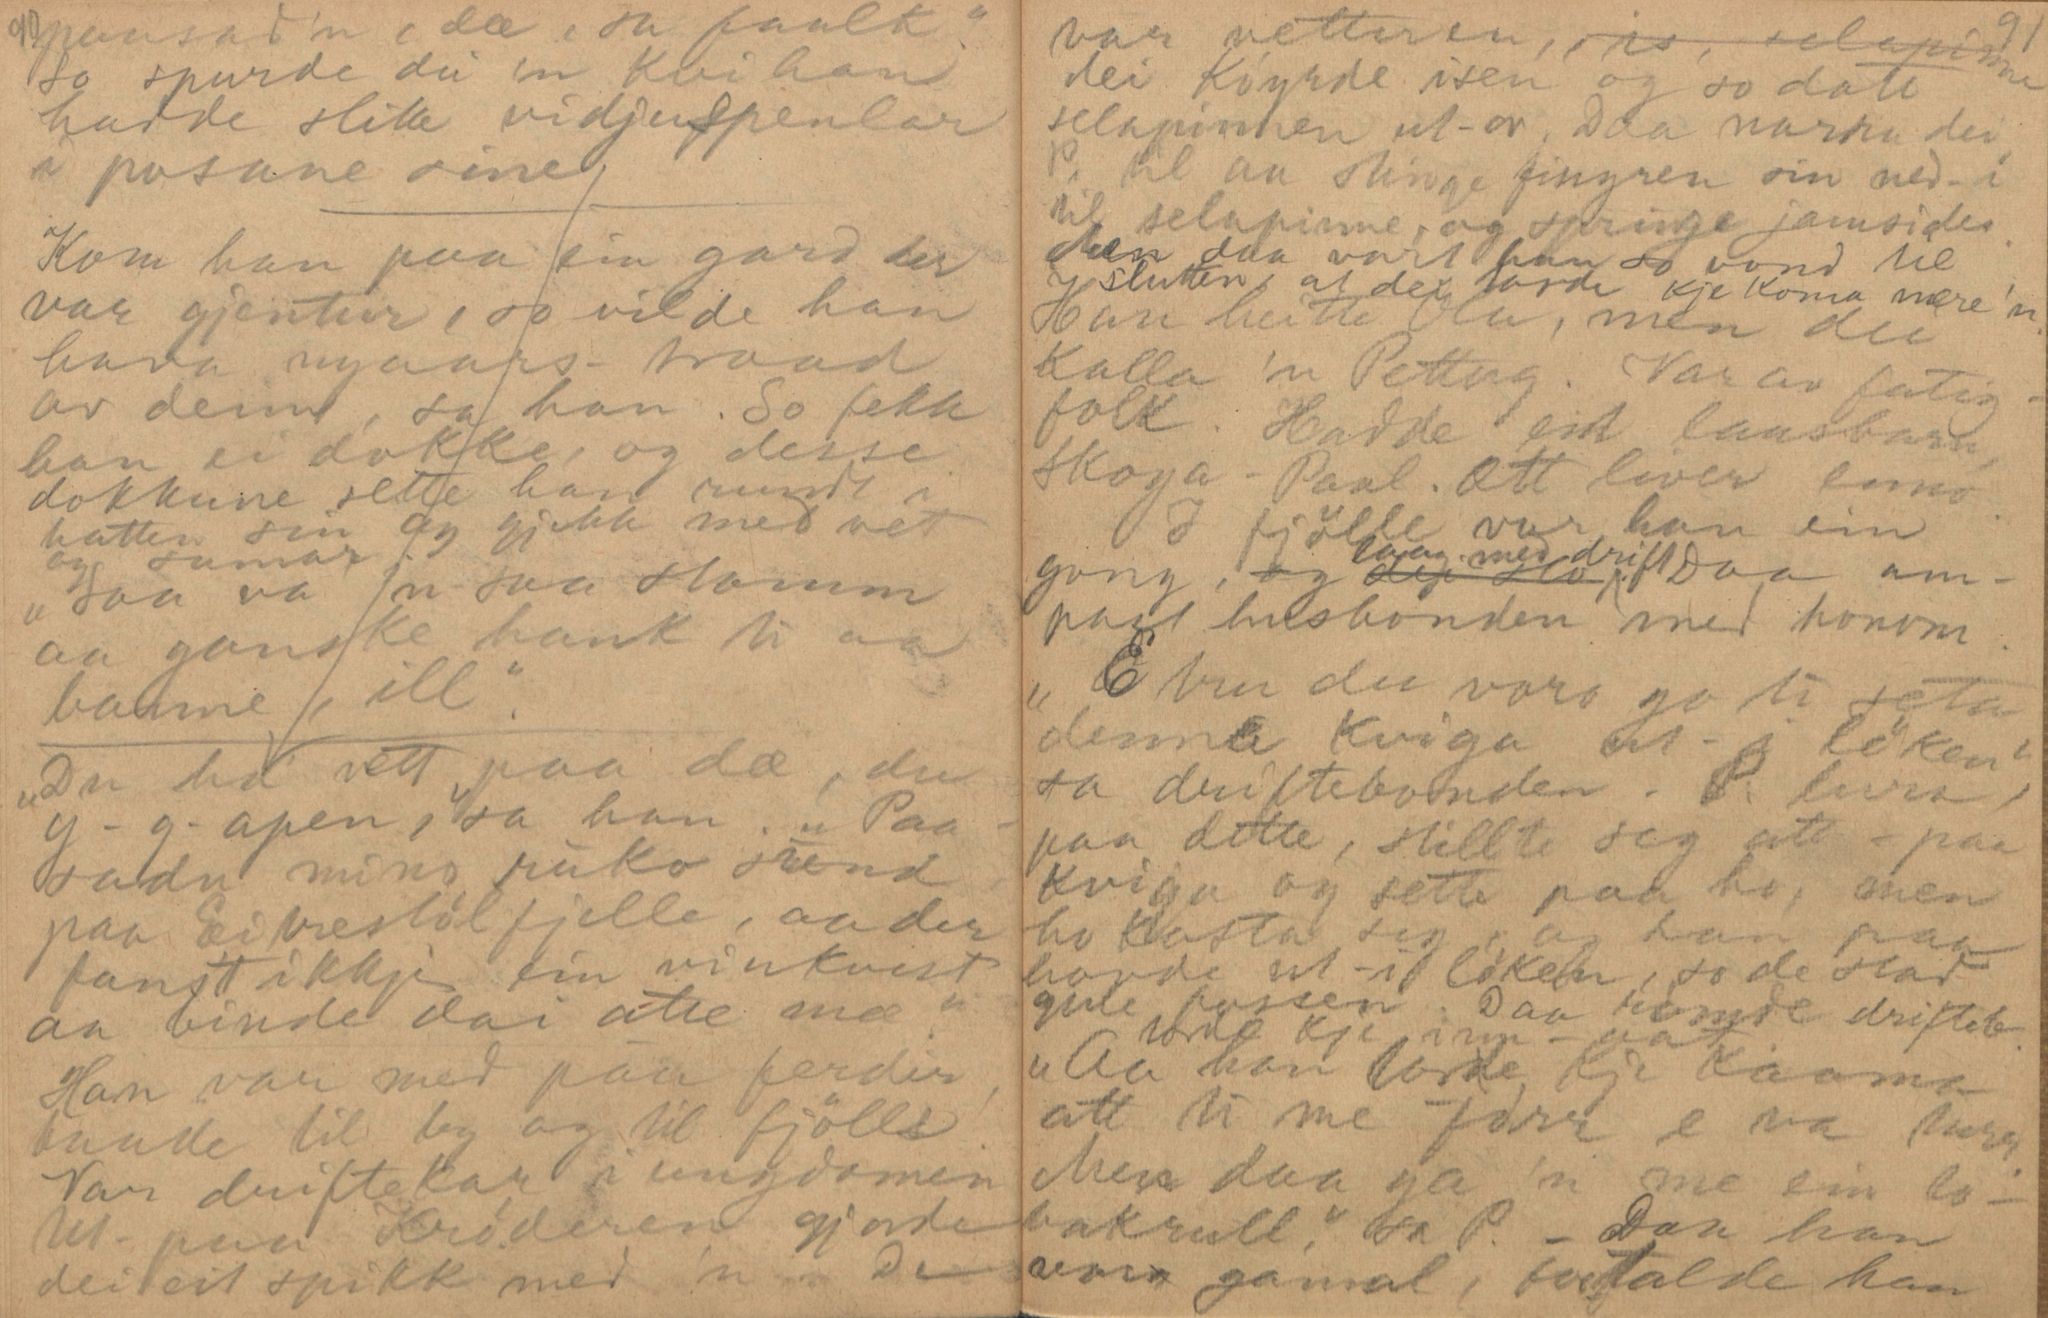 90
paasad'n, dæ, sa faalk."
So spurde dei 'n kvi han
hadde slike vidjuspenlar
i posane sine.
Kom han paa ein gard der
var gjentur, so vilde han
hava nyaars-traad
av deim, sa han. So fekk
han ei dokke, og desse
dokkune sette han rundt i
hatten sin og gjekk med vet
og sumar.
"Saa va 'n saa stamm
aa ganske hank ti aa
banne, ill".
"Du ha vett paa dæ, du
g-g-apen," sa han. "Paa-
sadn mins ruko sund
paa Eivrestölfjelle, aa der
fanst ikkje ein vinkvist
aa binde dai atte mæ."
Han var med paa ferdir,
baade til by og til fjölls.
Var driftekar i ungdomen
Ut-paa Kröderen gjorde
dei eit spikk med 'n. De
91
var vetteren, is, selapinne
dei köyrde isen og so datt
selapinnen ut-or. Daa narra dei
P. til aa stinge fingren sin ned-i
til selapinne, og springe jamsides.
Men daa vart han so vond til
slutten, at dei torde kje koma nære 'n.
Han heitte Ola, men dei
kalla 'n Pettug. Var av fatig-
folk. Hadde eit lausbarn,
Skoga-Paal. Ætt liver enno.
I fjölle var han ein
gong, og laag med drift. Daa am-
past husbonden med honom.
"E tru du vore go ti seta
denne kviga ut-i löken"
sa driftebonden. P. lura
paa dette, stillte seg att-paa
kviga og sette paa ho, men
ho kasta seg, og han paa
hovde ut-i löken, so de stod
gule fossen. Daa römde drifteb.
torde kje inn-att
"Aa han torde kje kaama
att ti me förr e va turr.
Men daa ga 'n me ein to-
bakrull," sa P. – Daa han
vart gamal, fortalde han